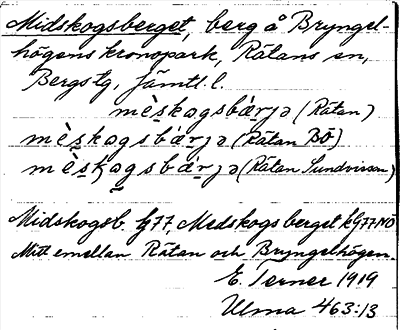 Midskogsberget, berg å Bryngel-
högens kronopark, Rätans sn,
Bergs tg, Jämtl. l.
mèskogsbärjə (Rätan)
mèskogsbärjə (Rätan BÖ)
mèskogsbärjə (Rätan Sundvisson)
Midskogsb. G77, Medskogsberget kG77NO
Mitt emellan Rätan och Bryngelhögen.
E. Terner 1919
Ulma 463:13